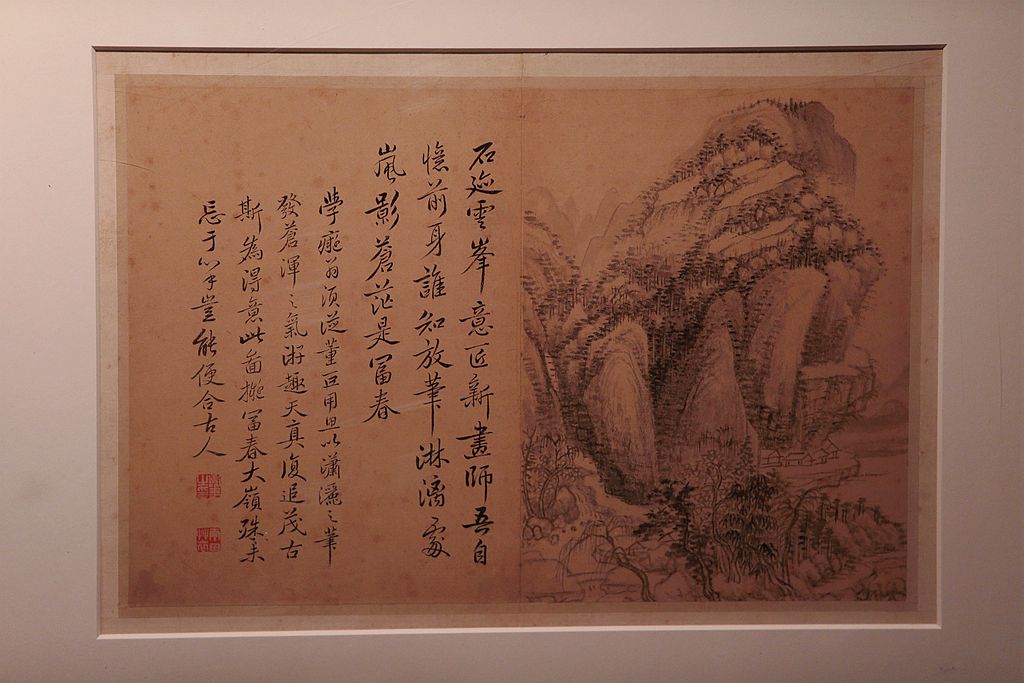 石迹雲峯意匠新畫師吾自
憶前身誰知放筆淋漓處
嵐影蒼茫是富春
學癡翁須從董巨用思以瀟灑之筆
發蒼渾之氣游趣天真復追茂古
斯為得意此圖擬富春大嶺殊未
忘于心手豈能便合古人